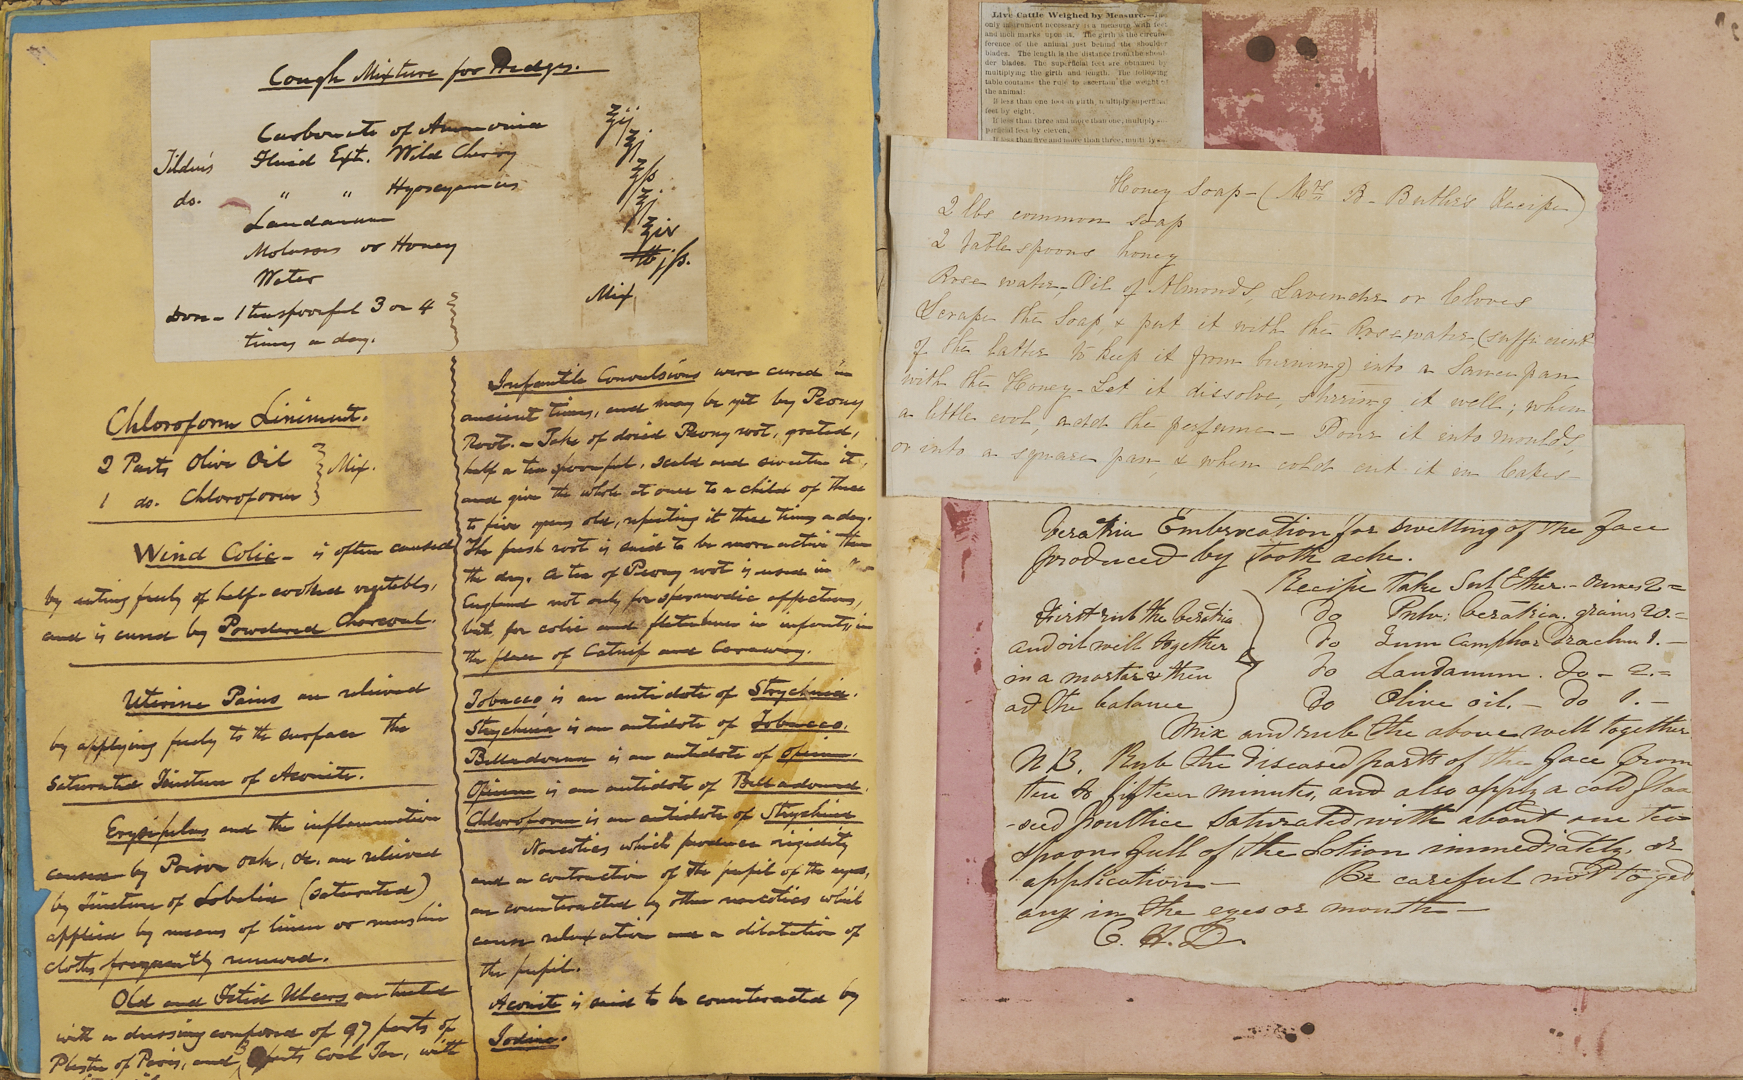 Cough Mixture for Hedges.
Carbonate of Ammonia ʒij
Tilden's Fluid Ext. Wild Cherry ʒj
do. " " Hyoscyamus ʒſs
Laudanum ʒj
Molasses or Honey ʒiv
Water ℔jſs.
Mix
Dose - 1 teaspoonful 3 or 4
times a day.
Chloroform Liniment.
2 Parts Olive Oil
1 do. Chloroform
Mix.
Wind Colic - is often caused
by eating freely of half-cooked vegetables,
and is cured by Powdered Charcoal.
Uterine Pains are relieved
by applying freely to the surface the
saturated Tincture of Aconite.
Erysipelas and the inflammation
caused by Poison oak, &c. are relieved
by Tincture of Lobelia (saturated)
applied by means of linen or muslin
cloths frequently renewed.
Old and Fetid Ulcers are treated
with a dressing composed of 97 parts of
Plaster of Paris, and 3 parts Coal Tar, with
Infantile Convulsions were cured in
ancient times, and may be yet by Peony
Root. - Take of dried Peony root, grated,
half a teaspoonful, scald and sweeten it,
and give the whole at once to a child of three
to five years old, repeating it three times a day.
The fresh root is said to be more active than
the dry. A tea of Peony root is used in
England not only for spasmodic affections,
but for colic and flatulence in infants, in
the place of Catnip and Caraway.
Tobacco is an antidote of Strychnia.
Strychnia is an antidote of Tobacco.
Belladonna is an antidote of Opium.
Opium is an antidote of Belladonna.
Chloroform is an antidote of Strychnia
Narcotics which produce rigidity
and a contraction of the pupil of the eyes,
are counteracted by other narcotics which
cause relaxation and a dilatation of
the pupil.
Aconite is said to be counteracted by
Iodine.
Live Cattle Weighed by Measure.—The
only instrument necessary is a measure with feet
and inch marks upon it. The girth is the circum-
ference of the animal just behind the shoulder
blades. The length is the distance from the shoul-
der blades. The superficial feet are obtained by
multiplying the girth and length. The following
table contains the rule to ascertain the weight of
the animal:
If less than one foot in girth, multiply superficial
feet by eight.
If less than three and more than one, multiply su-
perficial feet by eleven.
If less than five and more than three, multiply
Honey Soap - (Mrs B - Butler's Recipe)
2 lbs common soap
2 table spoons honey
Rose water, Oil of Almonds, Lavender or Cloves
Scrape the Soap, & put it with the Rose water (sufficient
of the latter to keep it from burning) into a Sauce pan,
with the Honey - Let it dissolve, stirring it well; when
a little cool, add the perfume - Pour it into moulds,
or into a square pan, & when cold cut it in Cakes -
Veratria Embrocation for swelling of the face
produced by Tooth ache.
Recipe Take Sul Ether. - Ounces 2 =
Do Pulv; veratria. grains 20. =
Do Gum Camphor Drachm 1. -
Do Laudanum. Do - 2. =
Do Olive oil. - Do 1. -
First rub the veratria
and oil well together
in a mortar & then
ad the balance
Mix and rub the above well together
N B. Rub the diseased parts of the face from
ten to fifteen minutes, and also apply a cold flax
-seed poultice saturated with about one tea
spoonsfull of the Lotion immediately, or
application - Be careful not to get
any in the eyes or mouth -
C. H. D.